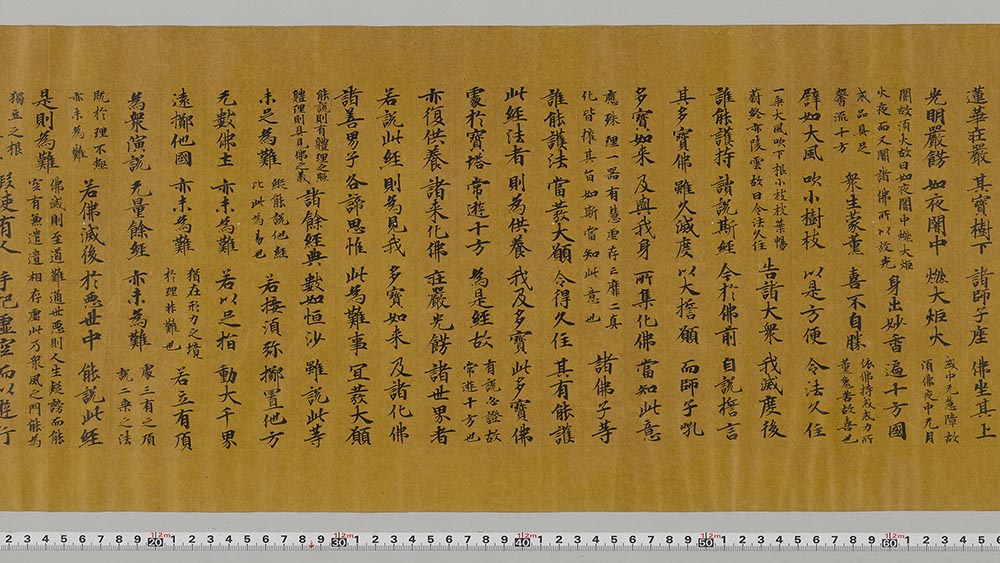 蓮華莊嚴 其寶樹下 諸師子座 佛坐其上
光明嚴餝 如夜闇中 燃大炬火
闇故須火故曰如夜闇中燃大炬
火夜而又闇諸佛所以放光
身出妙香 遍十方國
戒品具足
馨流十方
衆生蒙薰 喜不自勝
譬如大風 吹小樹枝 以是方便 令法久住
一乘大風吹下根小枝枝葉暢
蔚終亦陵雲故曰令法久住
告諸大衆 我滅度後
誰能護持 讀說斯經 今於佛前 自說誓言
其多寶佛 雖久滅度 以大誓願 而師子吼
多寶如来 及與我身 所集化佛 當知此意
應殊理一器有慧虛存亡靡二真
化皆推其旨如斯當知此意也
諸佛子等
誰能護法 當發大願 令得久住 其有能護
此經法者 則為供養 我及多寶 此多寶佛
處於寶塔 常遊十方 為是經故
有說必證故
常遊十方也
亦復供養 諸来化佛 莊嚴光餝 諸世界者
若說此經 則為見我 多寶如来 及諸化佛
諸善男子 各諦思惟 此為難事 宜發大願
能說則有體理之照
體理則具見佛之義
諸餘經典 數如恒沙 雖說此等
未足為難
縱能說他經
比此為易也
若接須弥 擲置他方
无數佛土 亦未為難 若以足指 動大千界
遠擲他國 亦未為難
猶在形力之境
於理非難也
若立有頂
為衆演說 无量餘經 亦未為難
處三有之頂
說二乘之法
既於理不極
亦未為難
若佛滅後 於惡世中 能說此經
是則為難
佛滅則至道難通世惡則人生疑謗而能
空有無遣遣相存虛此乃衆風之門能為
獨立之根
假使有人 手把虛空 而以遊行